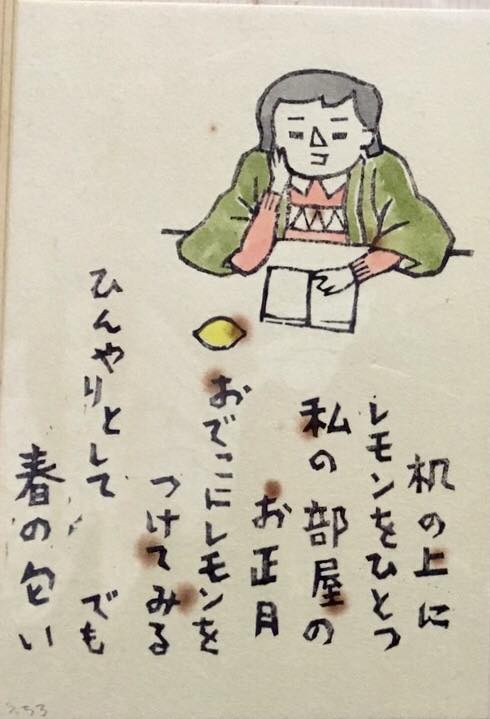 机の上に
レモンをひとつ
私の部屋の
お正月
おでこにレモンを
つけてみる
ひんやりとして でも
春の匂い